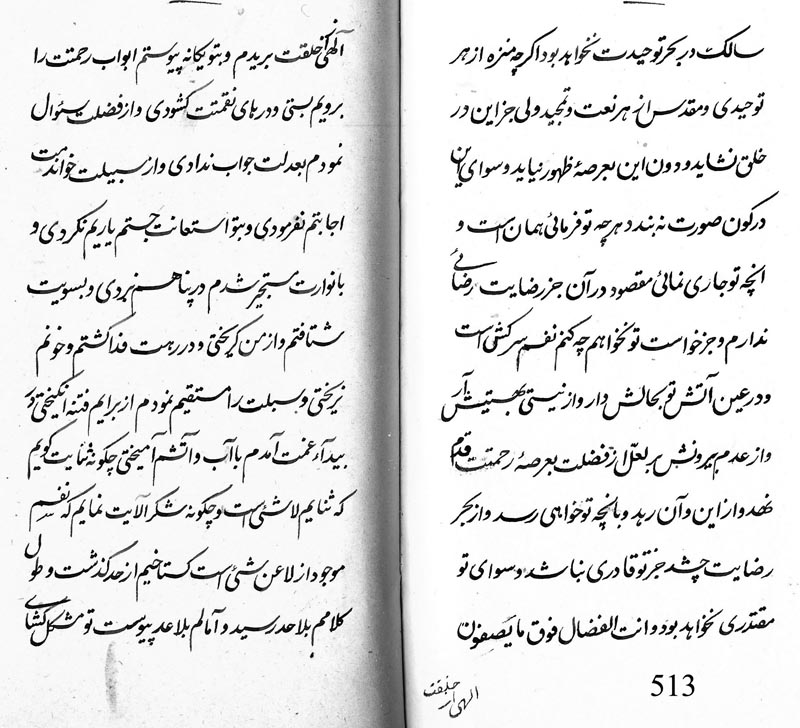 سالک در بحر توحیدت نخواهد بود اگرچه منزه از هر
توحیدی و مقدس از هر نعت و تمجید ولی جز این در
خلق نشاید و دون این بعرصهٔ ظهور نیاید و سوای این
در کون صورت نه بندد هرچه تو فرمائی همان است و
انچه تو جاری نمائی مقصود در آن جز رضایت رضائی
ندارم و جز خواست تو نخواهم چه کنم نفسم سرکش است
و در عین آتش تو بحالش دار و از نیستی بهستیش آر
و از عدم بیرونش بر لعلّ از فضلت بعرصهٔ رحمتت قدم
نهد و از این و آن رهد و بانچه تو خواهی رسد و از بحر
رضایت چشد جز تو قادری نباشد و سوای تو
مقتدری نخواهد بود و انت الفضال فوق ما یصفون
513
الهی از خلقت
آلهی از خلقت بریدم و بتو یگانه پیوستم ابواب رحمتت را
برویم بستی و درهای نقمتت گشودی و از فضلت سئوال
نمودم بعدلت جواب ندادی و از سبیلت خواندمت
اجابتم نفرمودی و بتو استعانت جستم یاریم نکردی و
بانوارت مستجیر شدم در پناهم نبردی و بسویت
شتافتم و از من گریختی و در رهت فدا گشتم و خونم
نریختی و سبلت را مستقیم نمودم از برایم فتنه انگیختی در
بیدآء غمت آمدم با آب و آتشم آمیختی چگونه ثنایت گویم
که ثنایم لاشئی است و چگونه شکر الایت نمایم که نفسم
موجود از لاعن شئی است گستاخیم از حد گذشت و طول
کلامم بلاحد رسید و آمالم بلاعد پیوست تو مشکل گشای